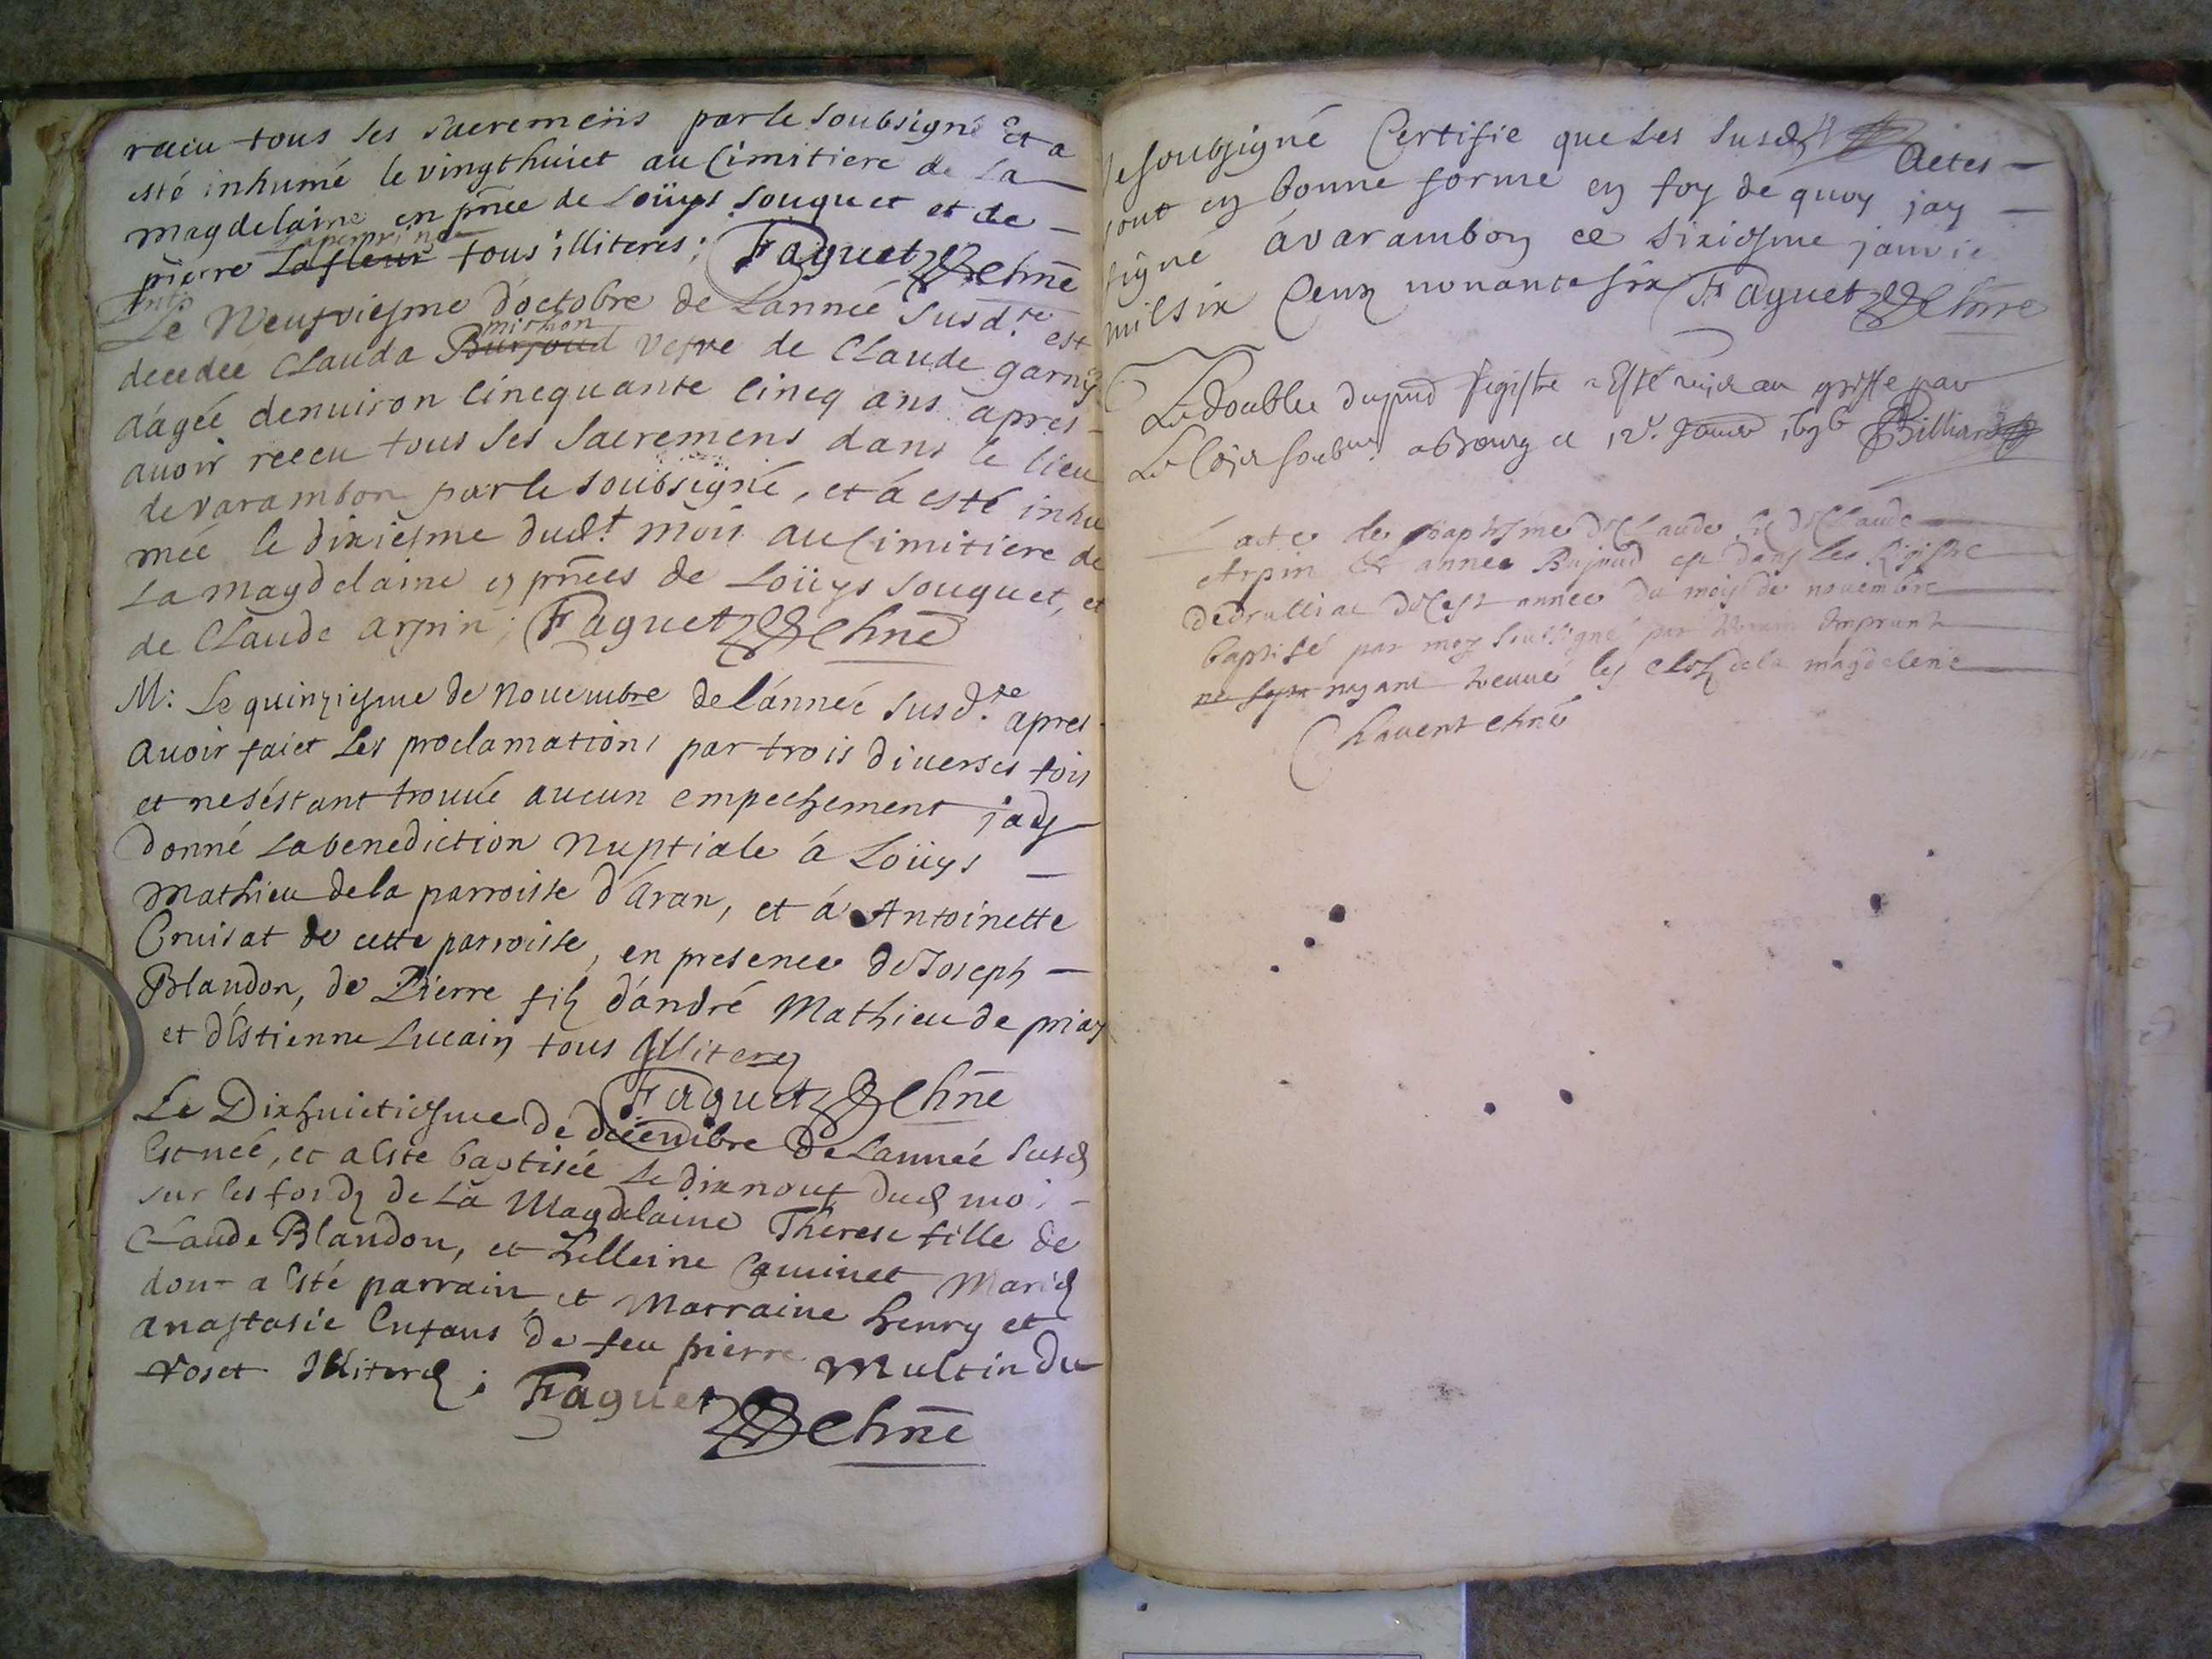 receu tous les sacremens par le soubsigné et a
esté inhumé le vingthuict au Cimitiere de La
magdelaine en pnce de Loüys Souquet et de
pierre Lafleur tous illiteres; Faguet chne
Le Neufviesme d'octobre de Lannée Susd.te est
decedée Clauda michon Vefve de Claude garny
aágée denuiron Cincquante Cincq ans apres
auoir receu tous Ses Sacremens dans le lieu
de varambon par le soubsigné, et á esté inhu
mée le dixiesme dud.t mois au Cimitiere de
La magdelaine en pnces de Loüys Souquet, et
de Claude arpin; Faguet chne
M: Le quinziesme de Nouembre de l'année Susd.te apres
auoir faict Les proclamations par trois diuerses fois
et neséstant trouué aucun empechement jay
donné La benediction Nuptiale á Loüys
Mathieu de la parroisse d'Aran, et á Antoinette
Cruisat de cette parroisse, en presence de Joseph
Blandon, de Pierre filz d'andré Mathieu de priay
et d'Estienne Lucain tous Illiterez
Faguet chne
Le Dixhuictiesme de decembre de Lannée Susd
Est née, et a Esté baptisée Le dixnouf dud moi
sur les fondz de La Magdelaine Therese fille de
Claude Blandon, et helleine Caminet Mariez
dont a Esté parrain et Marraine henry et
anastasie Enfans de feu pierre Multin du
roset Illiterez; Faguet
chne
Je soubsigné Certifie que Les Susd Actes
sont en bonne forme en foy de quoy jay
signé á varambon ce Sixiesme janvie
mil six Cens nonante six Faguet chne
Le double du pnt Registre a Esté mis au greffe par
Le Commis soubne. a Bourg ce 12e. Janvier 1696 Billiard
L'acte de Baptesme de Claude fils de Claude
Arpin et annee Bujoud est dans les Registre
de druillat de cest année du mois de novembre
baptisé par moy soussigné par
n'ayant treuué les clefz de la magdeleine
Chavent chne